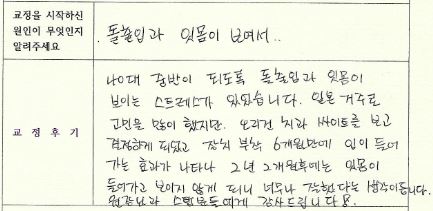 교정을 시작하신
원인이 무엇인지
알려주세요
. 돌출입과 잇몸이 보여서..
교 정 후 기
20대 중반이 되도록 돌출입과 잇몸이
보이는 스트레스가 있었습니다. 일본 거주로
고민을 많이 했지만. 오리건 치과 싸이트를 보고
결정하게 되었고 장치 부착 6개월만에 입이 들어
가는 효과가 나타나 2년 2개월후에는 잇몸이
들어가고 보이지 않게 되니 너무나 잘했다는 생각이듭니다.
원장님과 스탭분들에게 감사드립니다